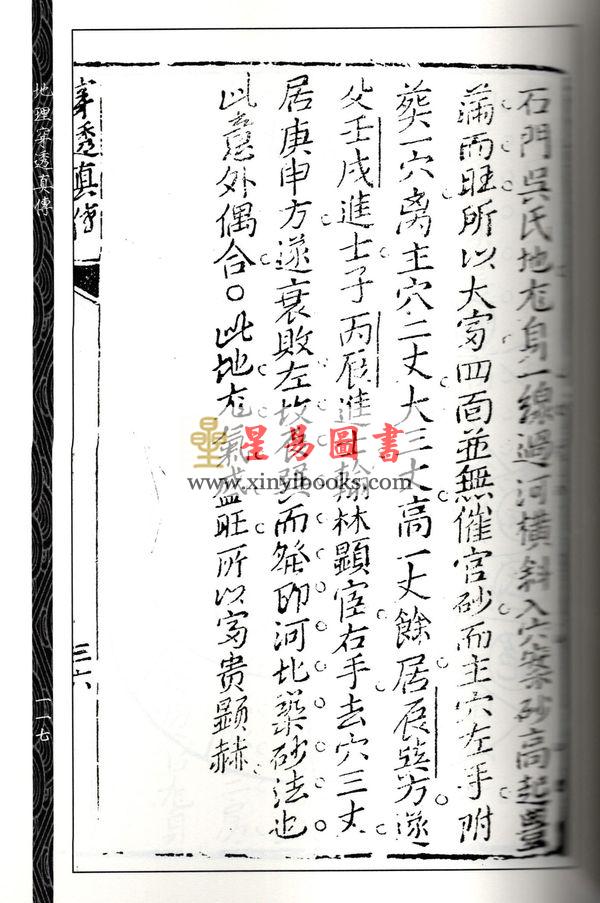 石門吳氏地尨身一線過河橫斜入穴案砂高起豐
滿而旺所以大富四面並無催官砂而主穴左手附
葬一穴离主穴二丈大三丈高一丈餘居辰巽方遂
父壬戌進士子丙辰進士翰林顯宦右手去穴三丈
居庚申方遂衰敗左坟辰巽而發即河北築砂法也
此意外偶合○此地尨氣成益旺所以富贵顕赫
穿透真傳
三六
地理穿透真傳
一一七
星易圖書
www.xinyibooks.com